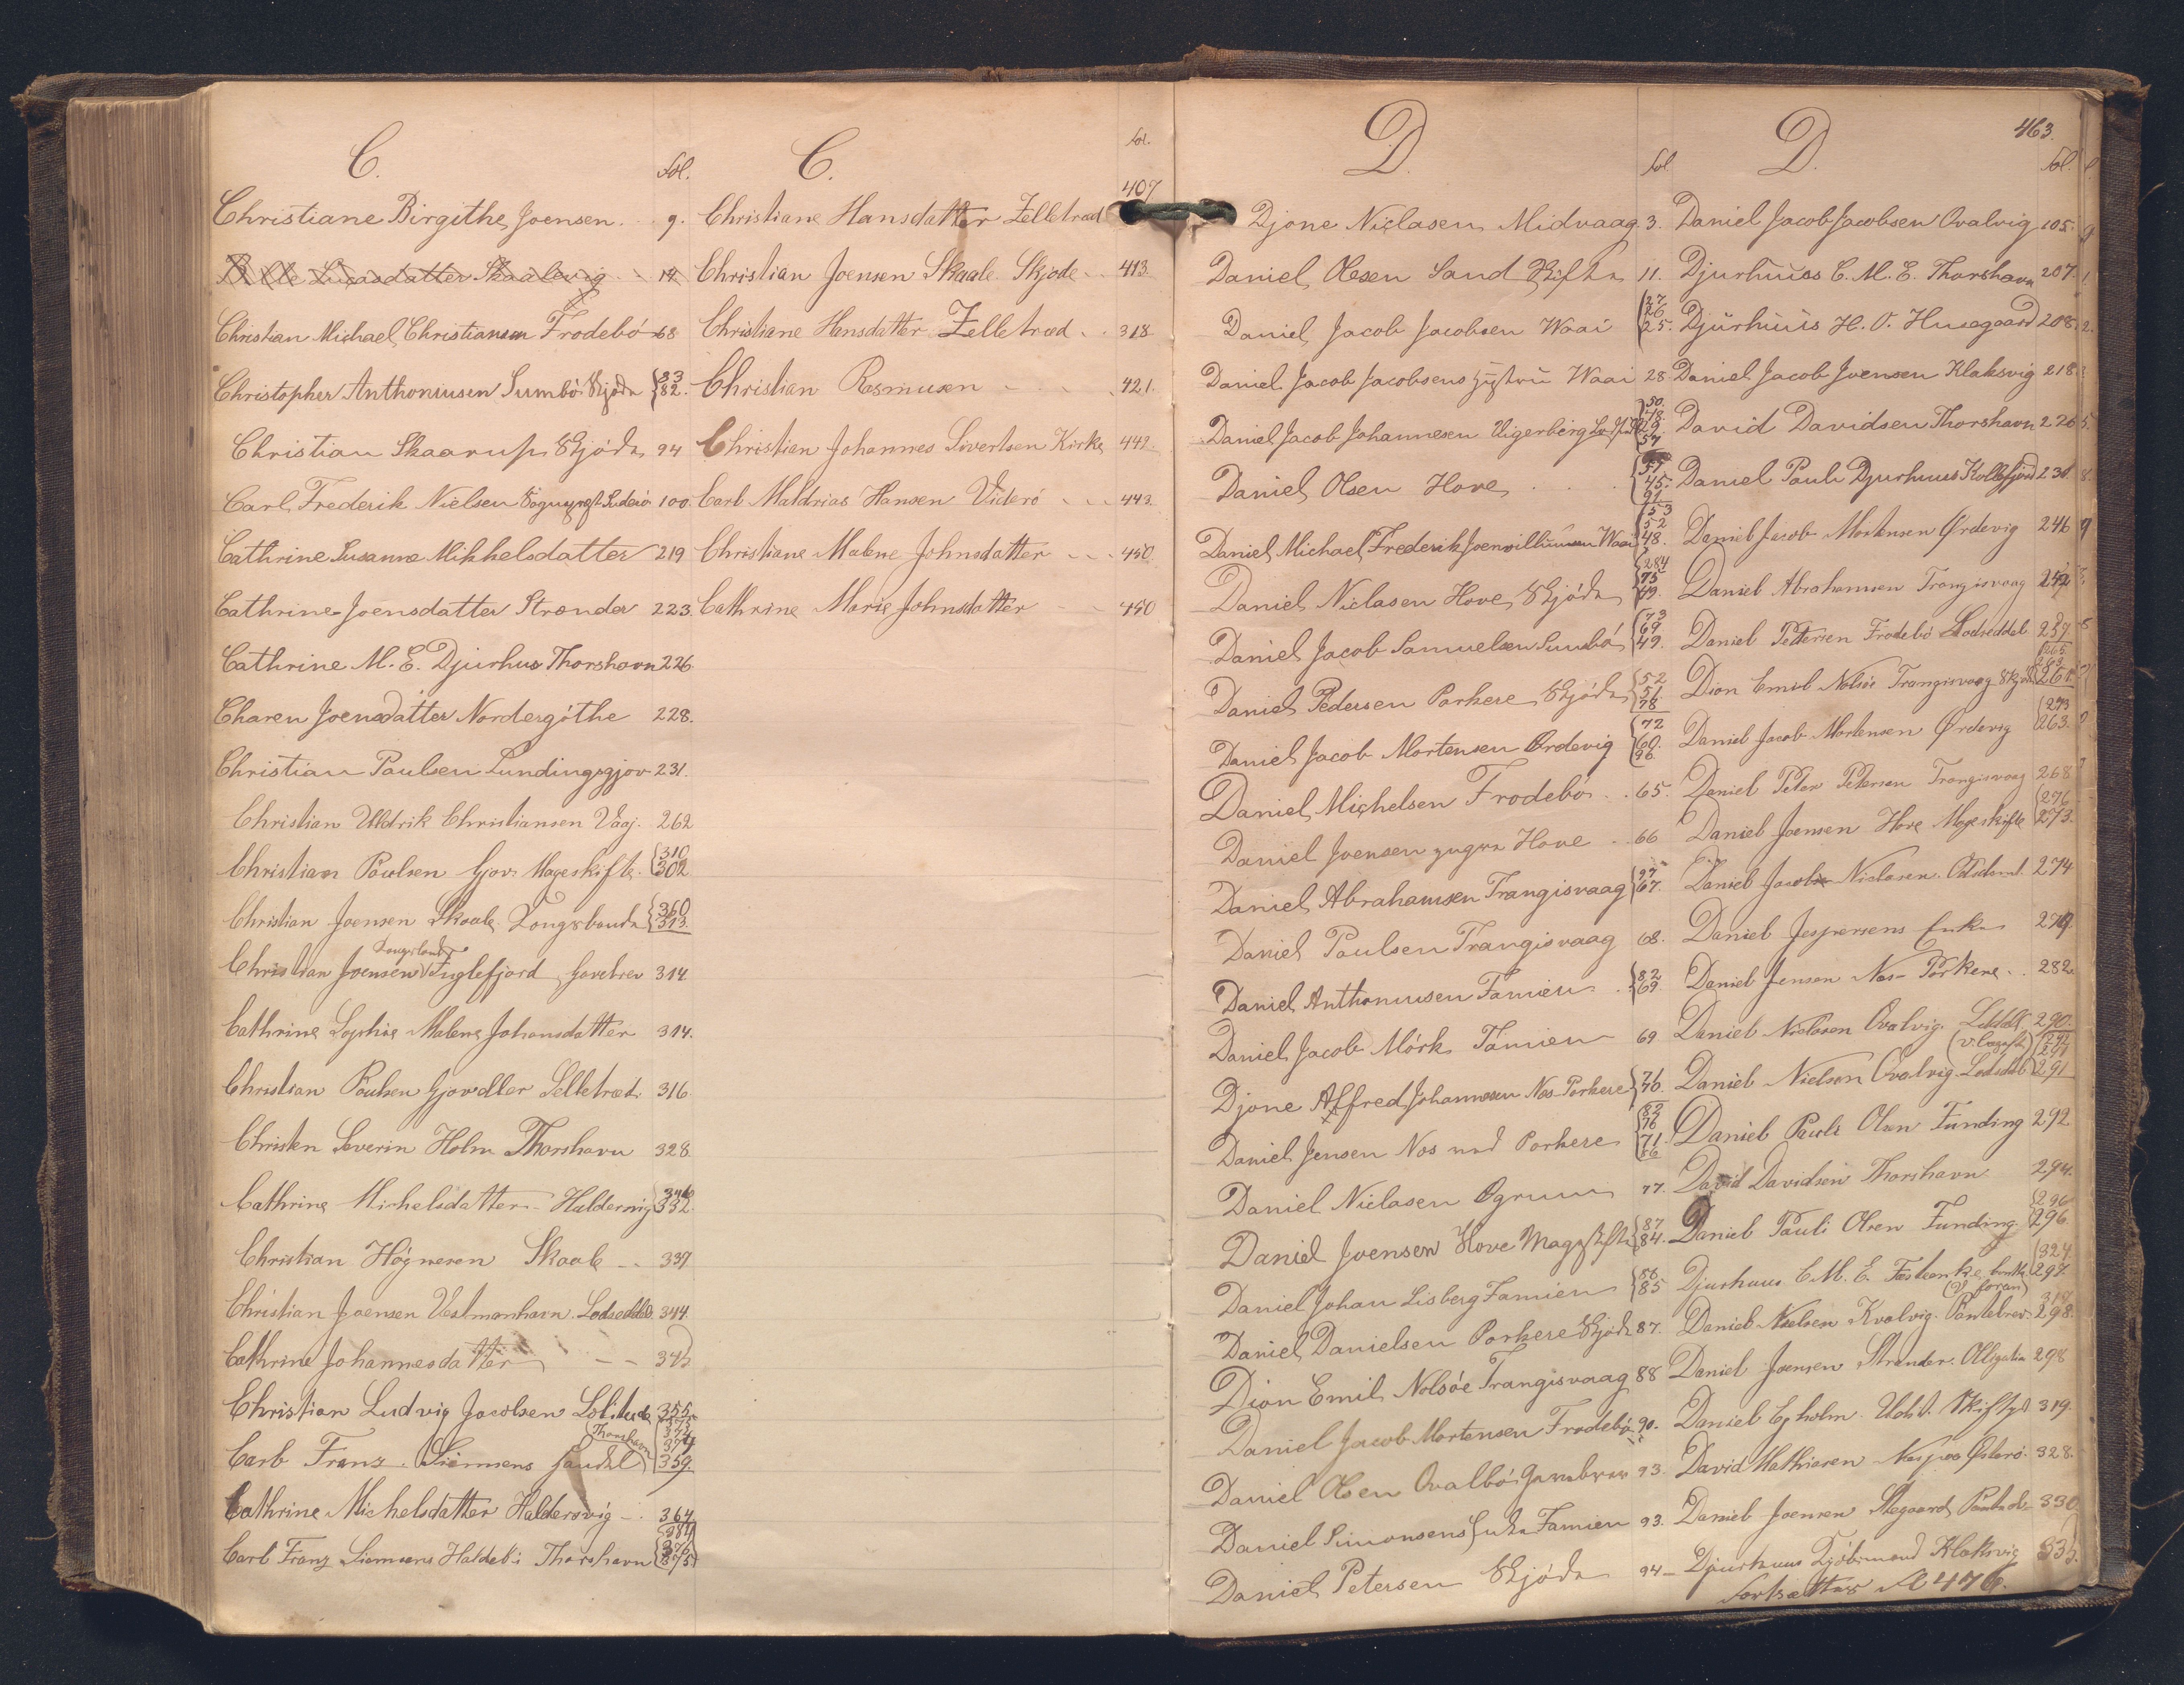 C.
fol.
Christiane Birgithe Joensen 9.
Lucasdatter Skaalevig 12
Christian Michael Christiansen Frodebö 68
Christopher Anthoniusen Sumbö Skjöde {83 82.
Christian Skaarup Skjöde 94
Carl Frederik Nielsen Sognepræst Suderö 100.
Cathrine Susanne Mikkelsdatter 219
Cathrine Joensdatter Strender 223.
Cathrine M. E. Djurhus Thorshavn 226
Charen Joensdatter Nordergöthe 228.
Christian Paulsen Lundingsgjov 231.
Christian Uldrik Christiansen Vaaj. 262
Christian Poulsen Gjov Mageskifte {310 302
Christian Joensen Skaale Kongsbonde {360 313.
Kongsbonde
Christian Joensen Fuglefjord Gavebrev 314
Cathrine Sophie Malene Johansdatter 314.
Christian Poulsen Gjov eller Selletræd. 316
Christen Severin Holm Thorshavn 328.
Cathrine Michelsdatter Haldervig {346 332.
Christian Högnesen Skaale 339
Christian Joensen Vestmanhavn. Lodseddel. 344.
Cathrine Johannesdatter 345
Christian Ludvig Jacobsen Solitude 355.
Thorshavn
Carl Franz Siemens Handel 359.
Cathrine Michelsdatter Haldersvig 364
Carl Franz Siemsens Handel i Thorshavn {384 376 375
C.
fol.
407
Christiane Hansdatter Zelletræd
Christian Joensen Skaale Skjöde 413.
Christiane Hansdatter Zelletræd 318
Christian Rasmusen 421.
Christian Johannes Sivertsen Kirke 442.
Carl Maldrias Hansen Viderö 443.
Christiane Malene Johnsdatter 450.
Cathrine Marie Johnsdatter 450
D.
fol
Djone Niclasen Midvaag 3.
Daniel Olesen Sand Skifte 11.
Daniel Jacob Jacobsen Waai {27 26 25.
Daniel Jacob Jacobsens Hustru Waai 28
Daniel Jacob Johannesen Vigerberg
Daniel Olsen Hove {57 45. 91
Daniel Michael Frederik Joenwilliumsen Waai {53 52 48.
Daniel Niclasen Hove Skjöde {284 75 49.
Daniel Jacob Samuelsen Sumbö {73 69 49.
Daniel Pedersen Porkere Skjöde {52 51. 78
Daniel Jacob Mortensen Ördevig {72 60. 96.
Daniel Michelsen Frodebö 65.
Daniel Joensen yngre Hove 66
Daniel Abrahamsen Trangisvaag 67.
Daniel Paulsen Trangisvaag 68.
Daniel Anthoniusen Famien {82 69.
Daniel Jacob Mörk Famien 69
Djone Alfred Johannesen Nos Porkere {76 70.
Daniel Jensen Nos ved Porkere {82 76 71. 56
Daniel Niclasen Ogrum 77.
Daniel Joensen Hove Mageskifte {87 84.
Daniel Johan Lisberg Famien {86 85
Daniel Danielsen Porkere Skjöde 87.
Dion Emil Nolsöe Trangisvaag 88
Daniel Jacob Mortensen Frodebö 90.
Daniel Olsen Ovalbö Gavebrev 93.
Daniel Simonsens Enke Famien 93.
Daniel Petersen Skjöde 94
D.
463.
fol.
Daniel Jacob Jacobsen Ovalvig 105.
Djurhuus C. M. E. Thorshavn 207.
Djurhuus H. O. Husegaard 208
Daniel Jacob Joensen Klaksvig 218
David Davidsen Thorshavn 226
Daniel Pauli Djurhuus Kollefjord 230
Daniel Jacob Mortensen Ørdevig 246
Daniel Abrahamsen Trangisvaag 242
Daniel Petersen Frodebö Lodseddel 257
Dion Emil Nolsöe Trangisvaag Skjöde 261.
Daniel Jacob Mortensen Ørdevig {273 263.
Daniel Peter Petersen Trangisvaag 268
Daniel Joensen Hove Mageskifte {276 273.
Daniel Jacob Niclasen 274
Daniel Jespersens Enke 279
Daniel Jensen Nos-Porkere 282
Daniel Nielsen Ovalvig. 290.
Daniel Nielsen Ovalvig. Lodseddel 291
Daniel Pauli Olsen Funding 292
David Davidsen Thorshavn 294.
Daniel Pauli Olsen Funding. {296 296.
Djurhuus C. M. E. {324 297.
(v. foran)
Daniel Nielsen Kvalvig. Pantebrev. 298.
Daniel Joensen Strender. Obligation 298
Daniel Ejholm Udst. Skifte 319.
David Mathiasen Næs paa Østerö. 328.
Daniel Joensen Stegaard 330
Djurhuus Kjöbmand Klaksvig 335.
Fortsættes № 476.